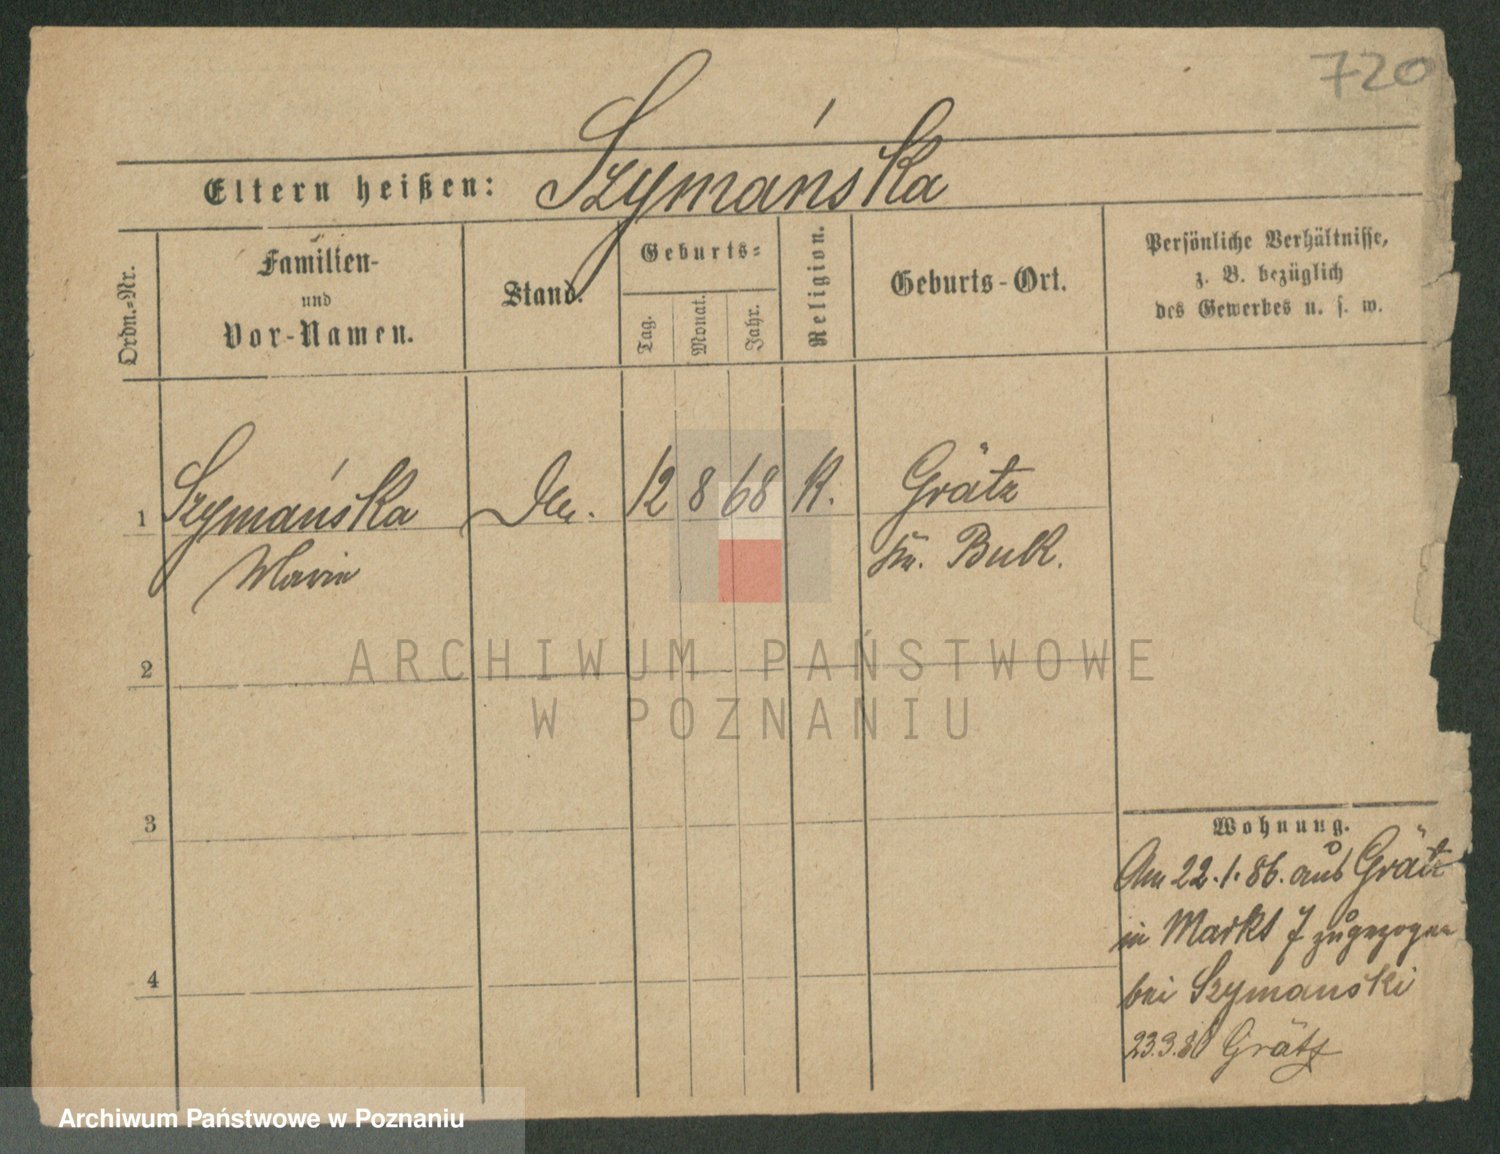 720
Eltern heißen: Szymańska
Ordn.-Nr.
Familien-
und
Vor-Namen.
Stand.
Geburts-
Tag.
Monat.
Jahr.
Religion.
Geburts-Ort.
Persönliche Verhältnisse,
z. B. bezüglich
des Gewerbes u. s. w.
1 Szymańska 12 8 68 K. Grätz
Marie Kr. Buk.
2
3
4
Wohnung.
Am 22.1.86. aus Grätz
in Markt 7 zugezogen
bei Szymanski
23.3.86 Grätz
ARCHIWUM PAŃSTWOWE
W POZNANIU
Archiwum Państwowe w Poznaniu